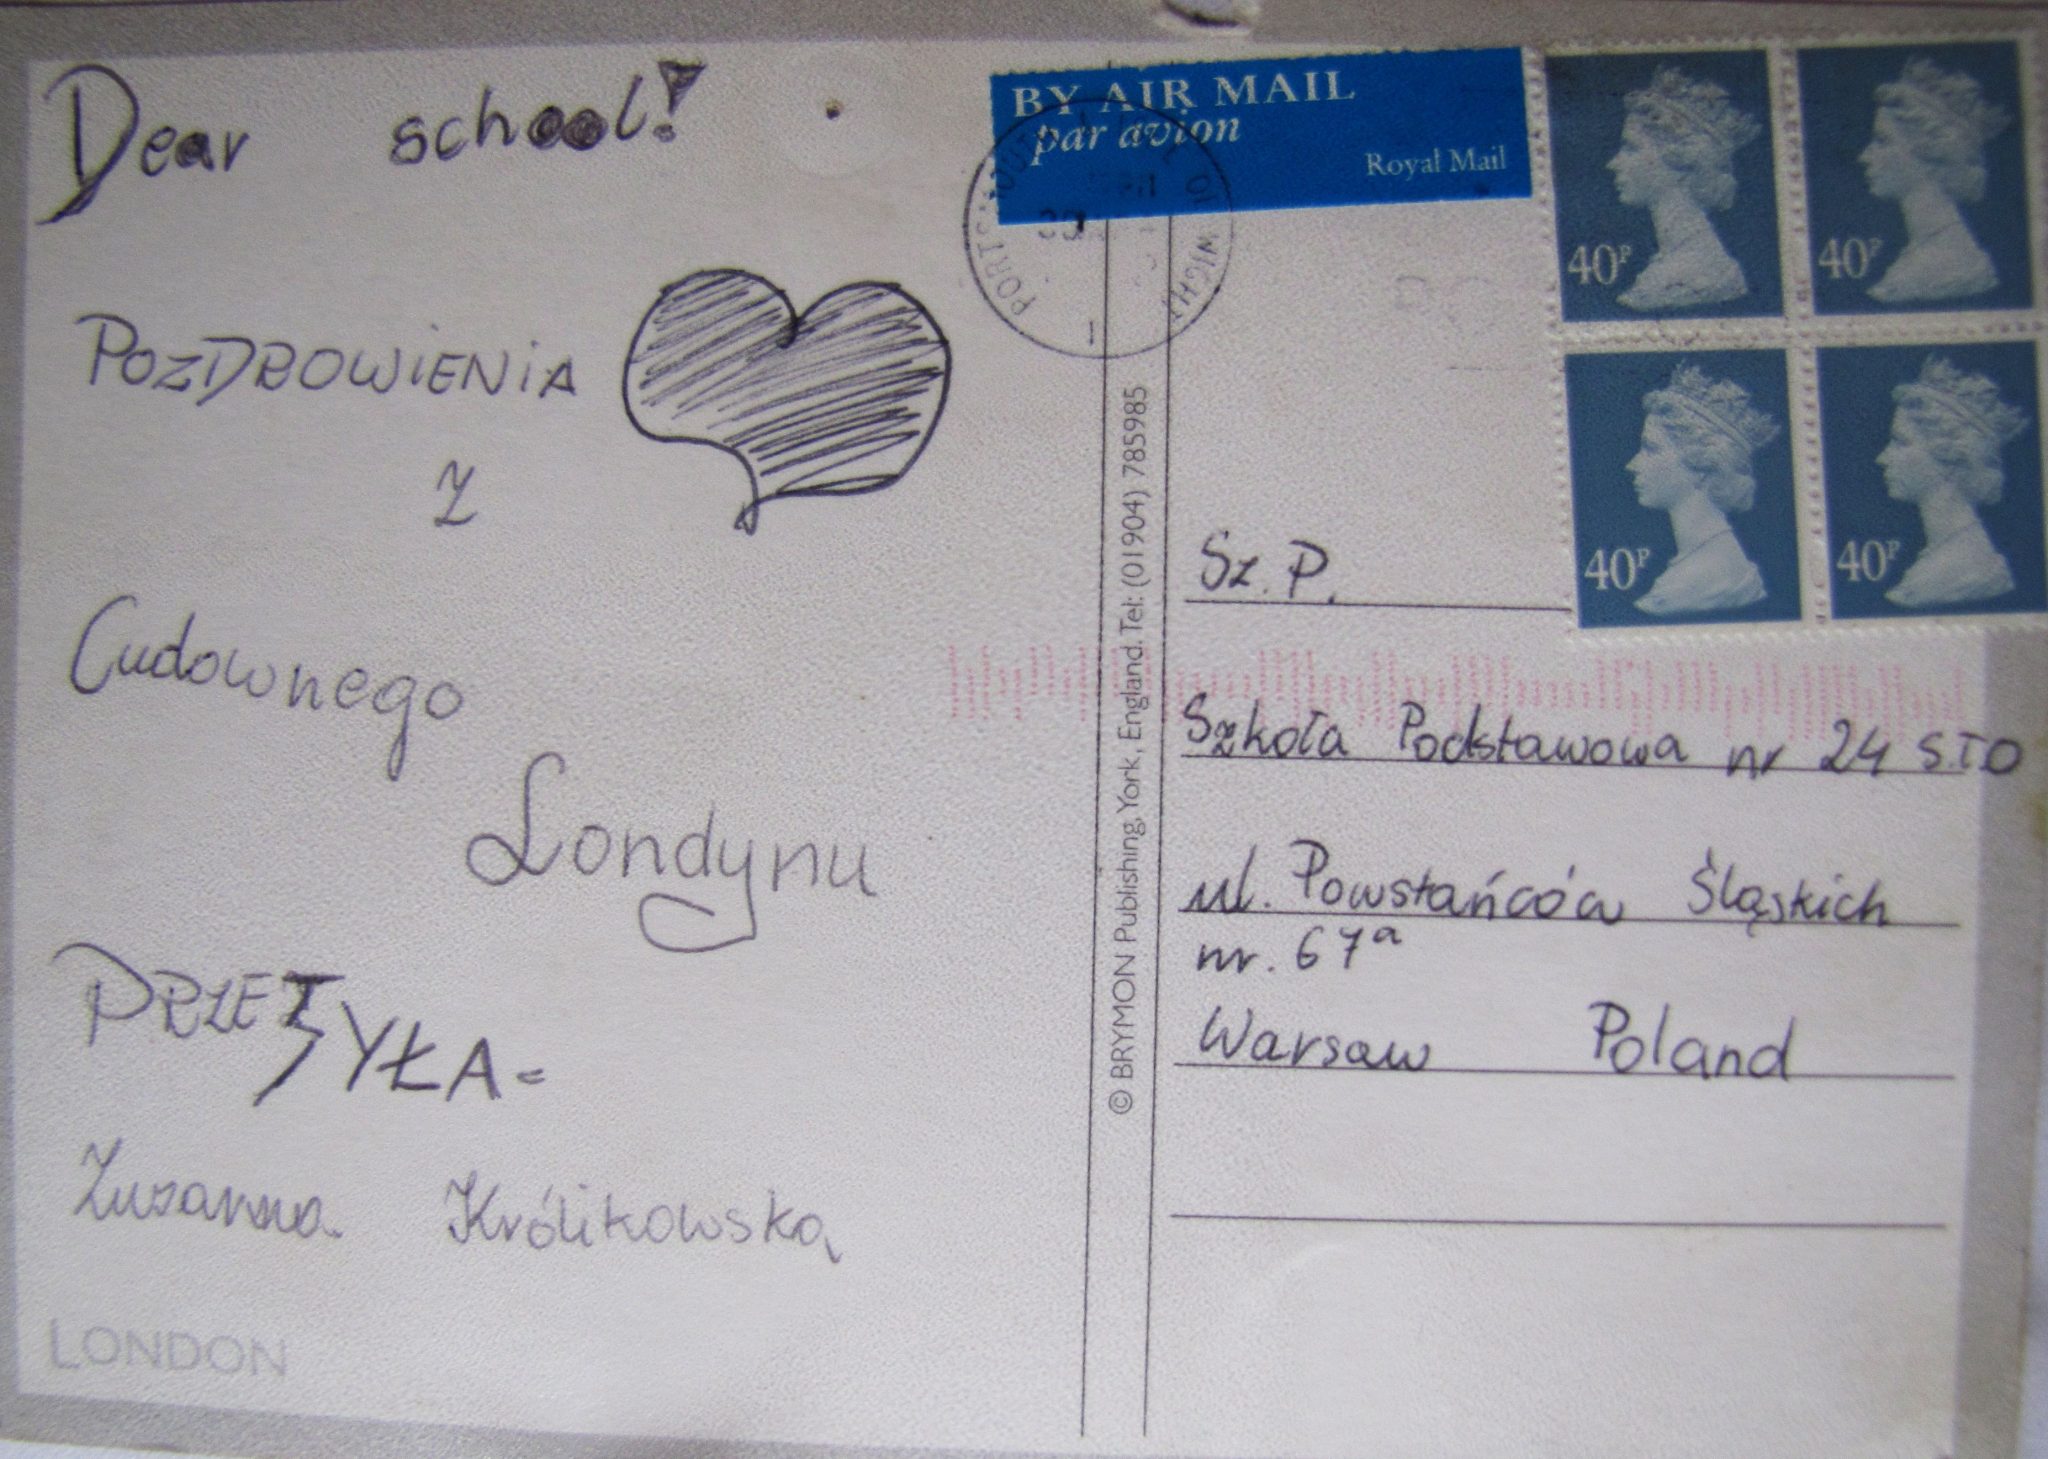 Dear school!
POZDROWIENiA
Z
Cudownego
Londynu
PRZESYŁA=
Zuzanna Królikowska
LONDON
BY AIR MAIL
par avion
Royal Mail
40P
40P
40P
40P
PORTSMOUTH
WIGHT
© BRYMON Publishing, York, England. Tel: (01904) 785985
Sz. P.
Szkoła Podstawowa nr 24 STO
ul. Powstańców Śląskich
nr. 67a
Warsaw Poland